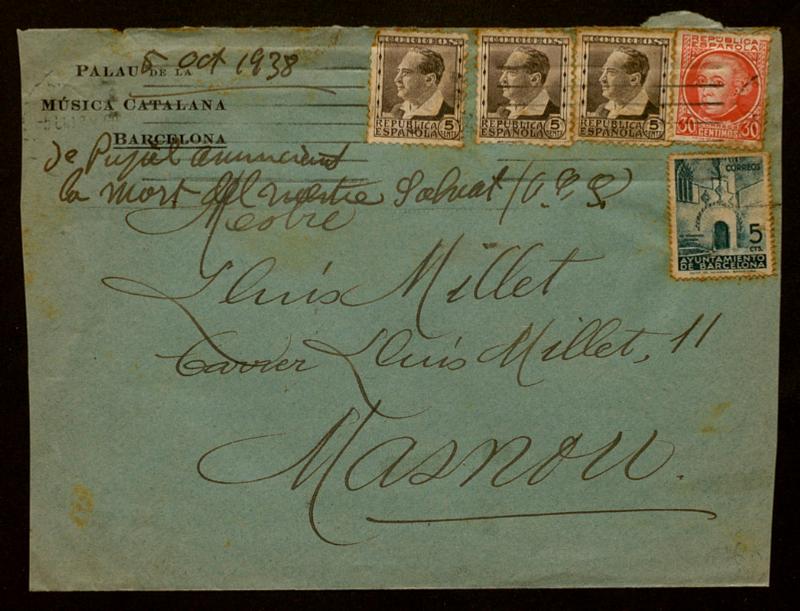 5 oct 1938
PALAU DE LA
MÚSICA CATALANA
BARCELONA
de Pujol anunciant
la mort del mestre Salvat (O.P.S.)
Mestre
Lluís Millet
Carrer Lluís Millet, 11
Masnou.
CORREOS
5 CENTS
REPUBLICA
ESPAÑOLA
CORREOS
5 CENTS
REPUBLICA
ESPAÑOLA
CORREOS
5 CENTS
REPUBLICA
ESPAÑOLA
REPUBLICA
ESPAÑOLA
30 CENTIMOS 30
CORREOS
5
CTS.
AYUNTAMIENTO
DE BARCELONA